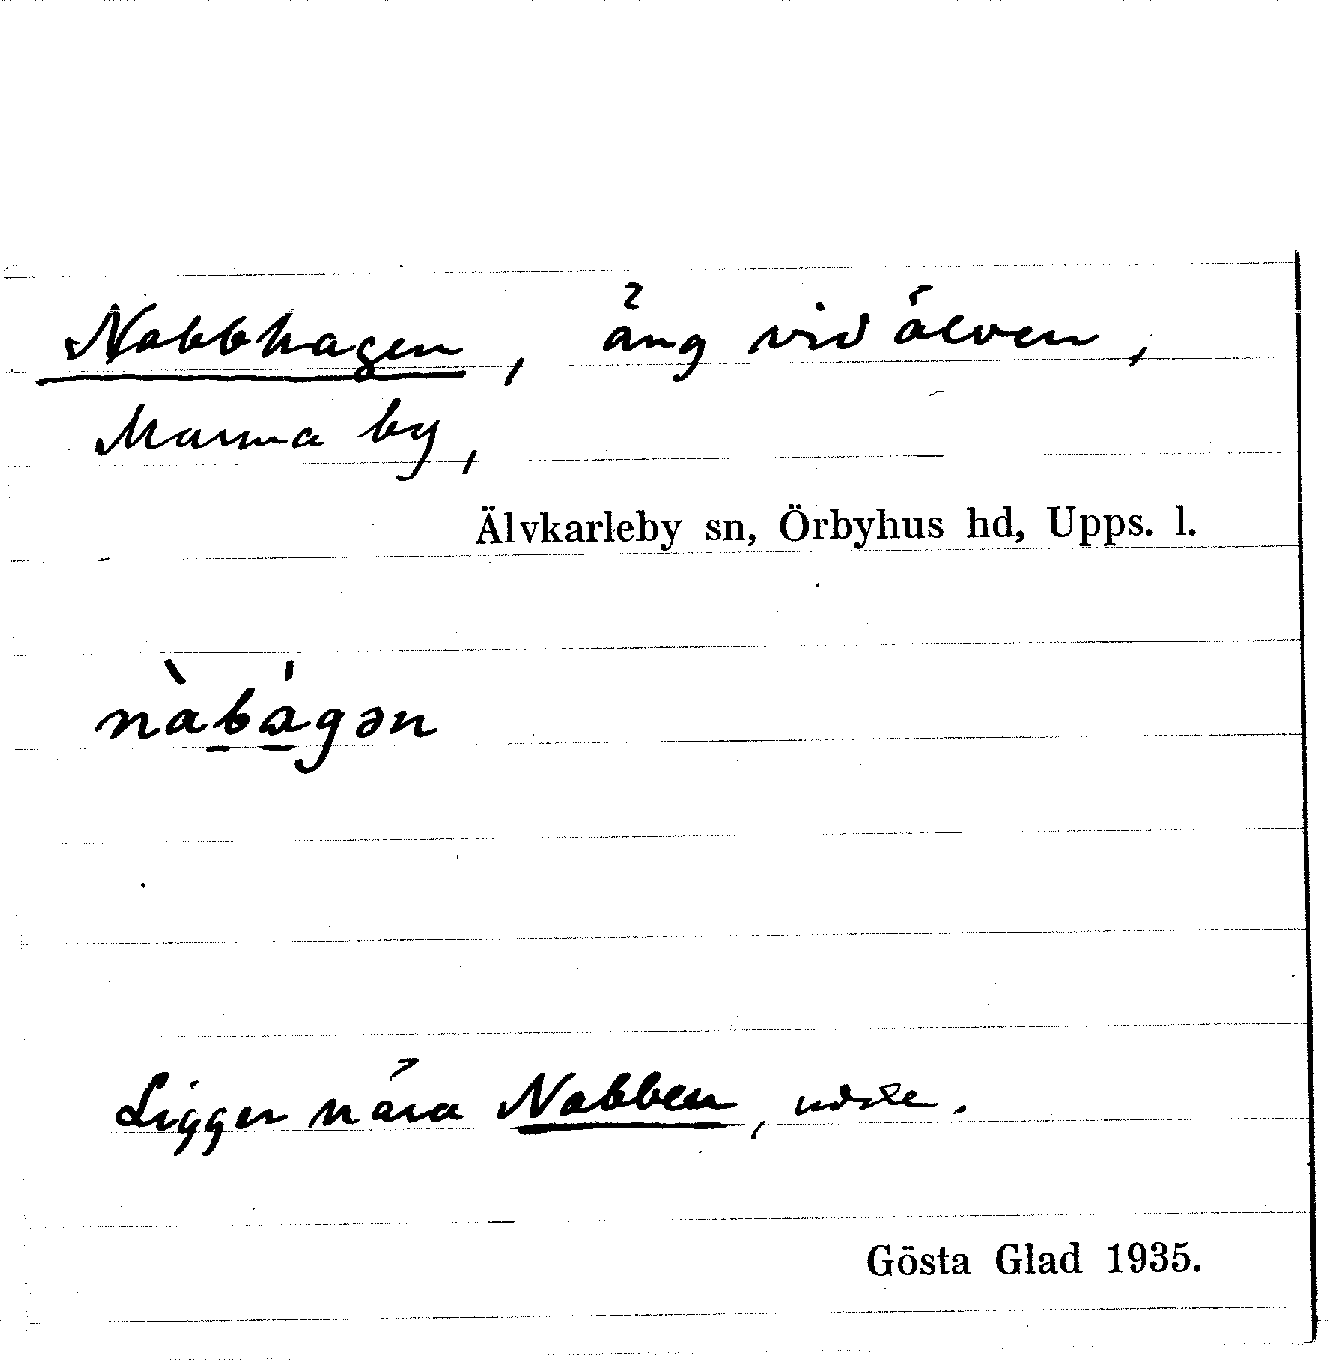 Nabbhagen, äng vid älven,
Marma by,
Älvkarleby sn, Örbyhus hd, Upps. l.
nàbágən
Ligger nära Nabben, udde.
Gösta Glad 1935.